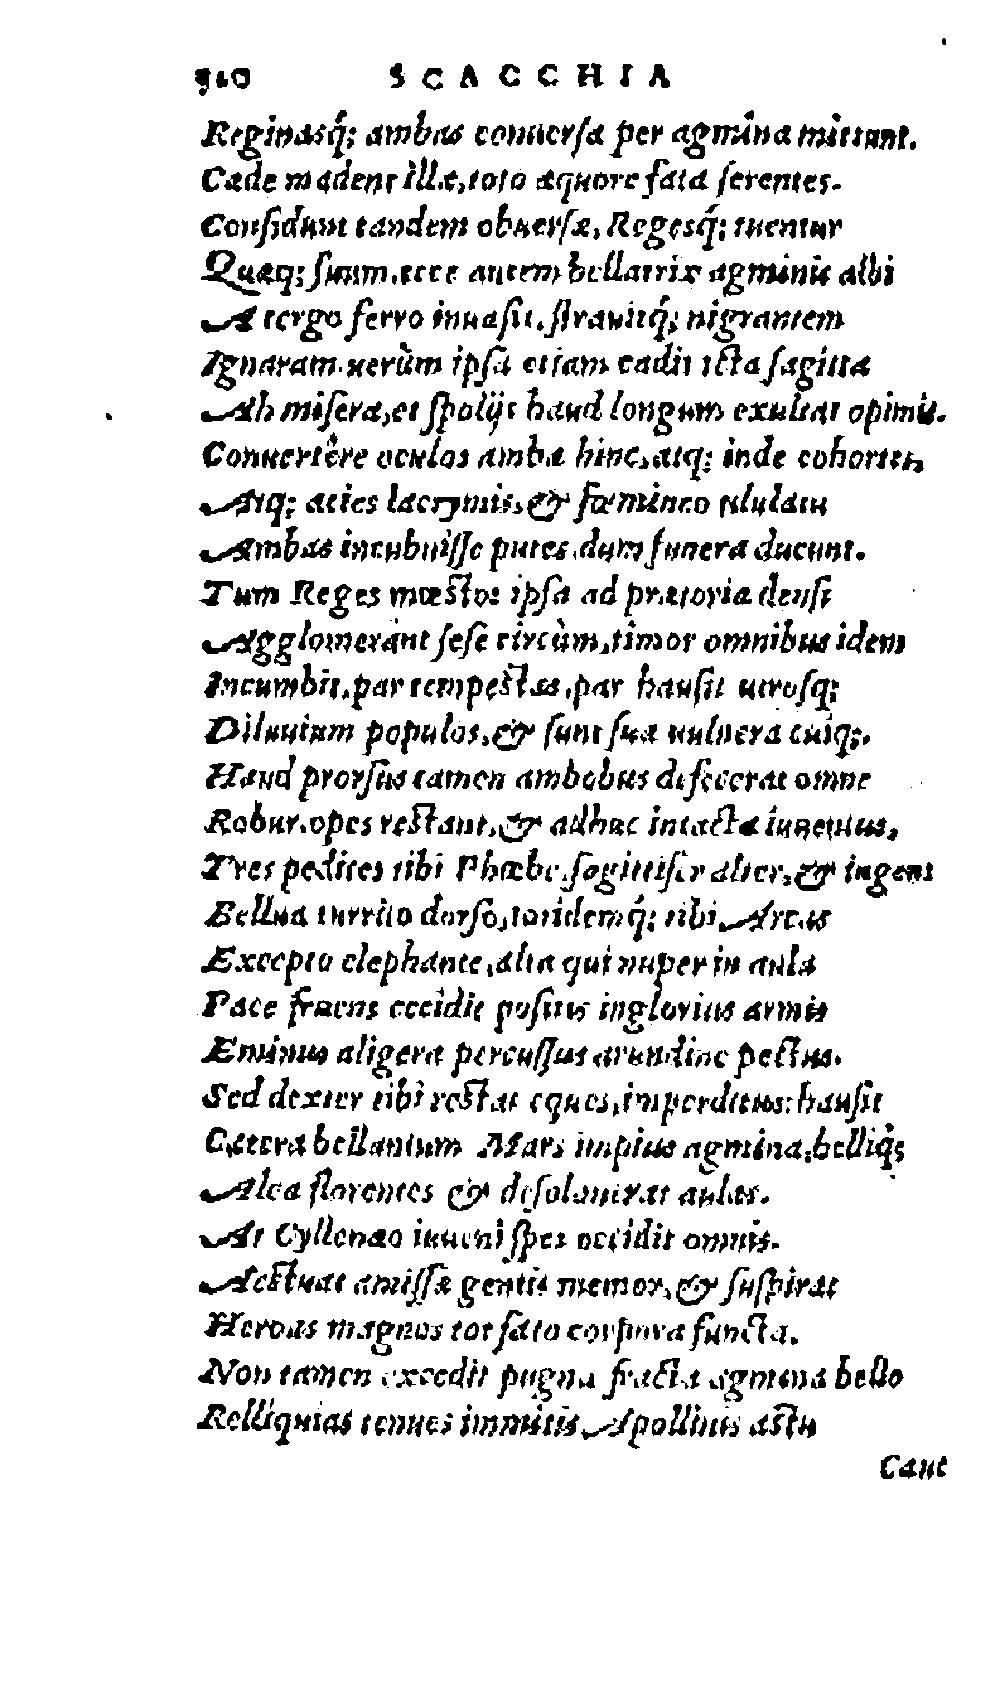 510 SCACCHIA
Reginasq́; ambas conuersa per agmina mittunt.
Cæde madent illæ, toto æquore fata ferentes.
Considunt tandem obuersæ, Regesq́; tuentur
Quæq; suum. ecce autem bellatrix agminis albi
A tergo ferro inuasit, strauitq́; nigrantem
Ignaram. uerùm ipsa etiam cadit icta sagitta
Ah misera, et spolijs haud longum exultat opimis.
Conuertêre oculos ambæ hinc, atq; inde cohortes,
Atq; acies lacrymis, & fœmineo ululatu
Ambas incubuisse putes, dum funera ducunt.
Tum Reges mœstos ipsa ad prætoria densi
Agglomerant sese circùm, timor omnibus idem
Incumbit, par tempestas, par hausit utrosq;
Diluuium populos, & sunt sua uulnera cuiq;.
Haud prorsus tamen ambobus defecerat omne
Robur, opes restant, & adhuc intacta iuuentus,
Tres pedites tibi Phœbe, sagittifer alter, & ingens
Bellua turrito dorso, totidemq́; tibi Arcas
Excepto elephante, alta qui nuper in aula
Pace fruens cecidit positis inglorius armis
Eminus aligera percussus arundine pectus.
Sed dexter tibi restat eques, imperditus: hausit
Cætera bellantum Mars impius agmina, belliq́;
Alea florentes & desolauerat aulas.
At Cyllenæo iuueni spes occidit omnis.
Aestuat amissæ gentis memor, & suspirat
Heroas magnos tot fato corpora functa.
Non tamen excedit pugna fracta agmina bello
Relliquias tenues immitis Apollinis astu
Caut